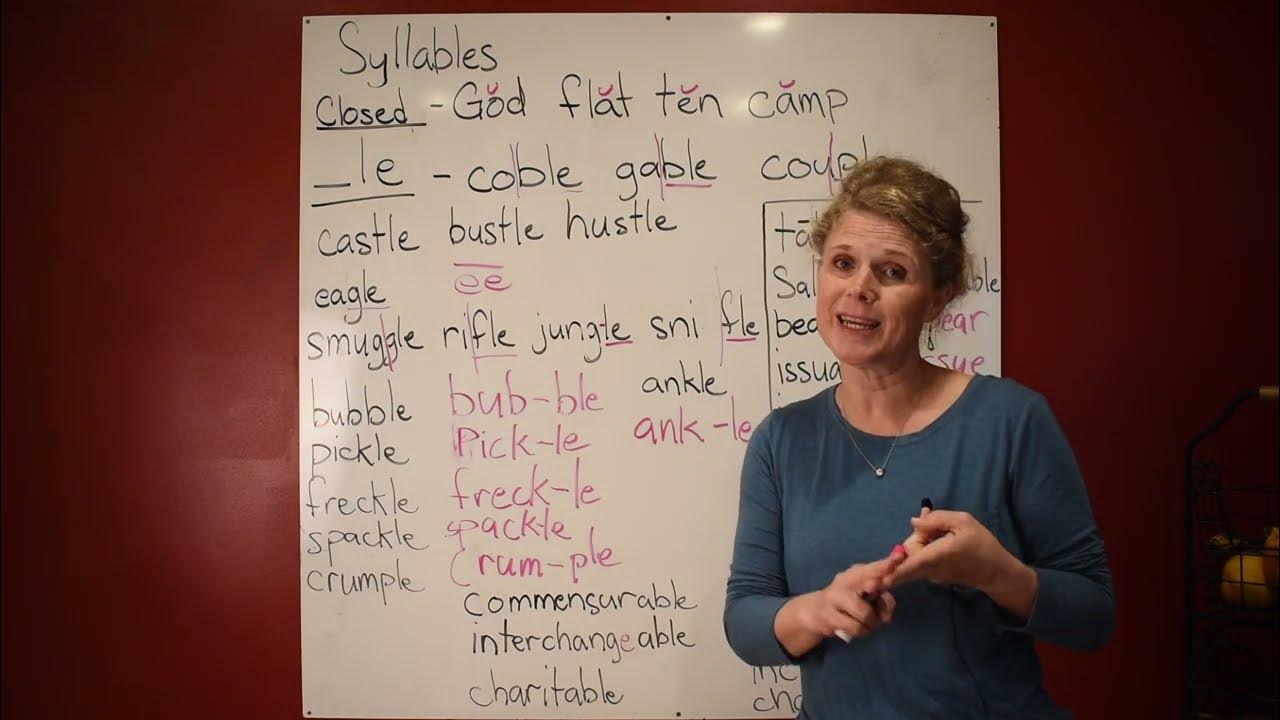 Syllables
Closed - Gŏd flăt tĕn cămp
_le - coble gable
castle bustle hustle
eagle ee
smuggle rifle jungle sni fle
bubble bub-ble ankle
pickle Pick-le ank-le
freckle freck-le
spackle spackle
crumple Crum-ple
commensurable
interchangeable
charitable